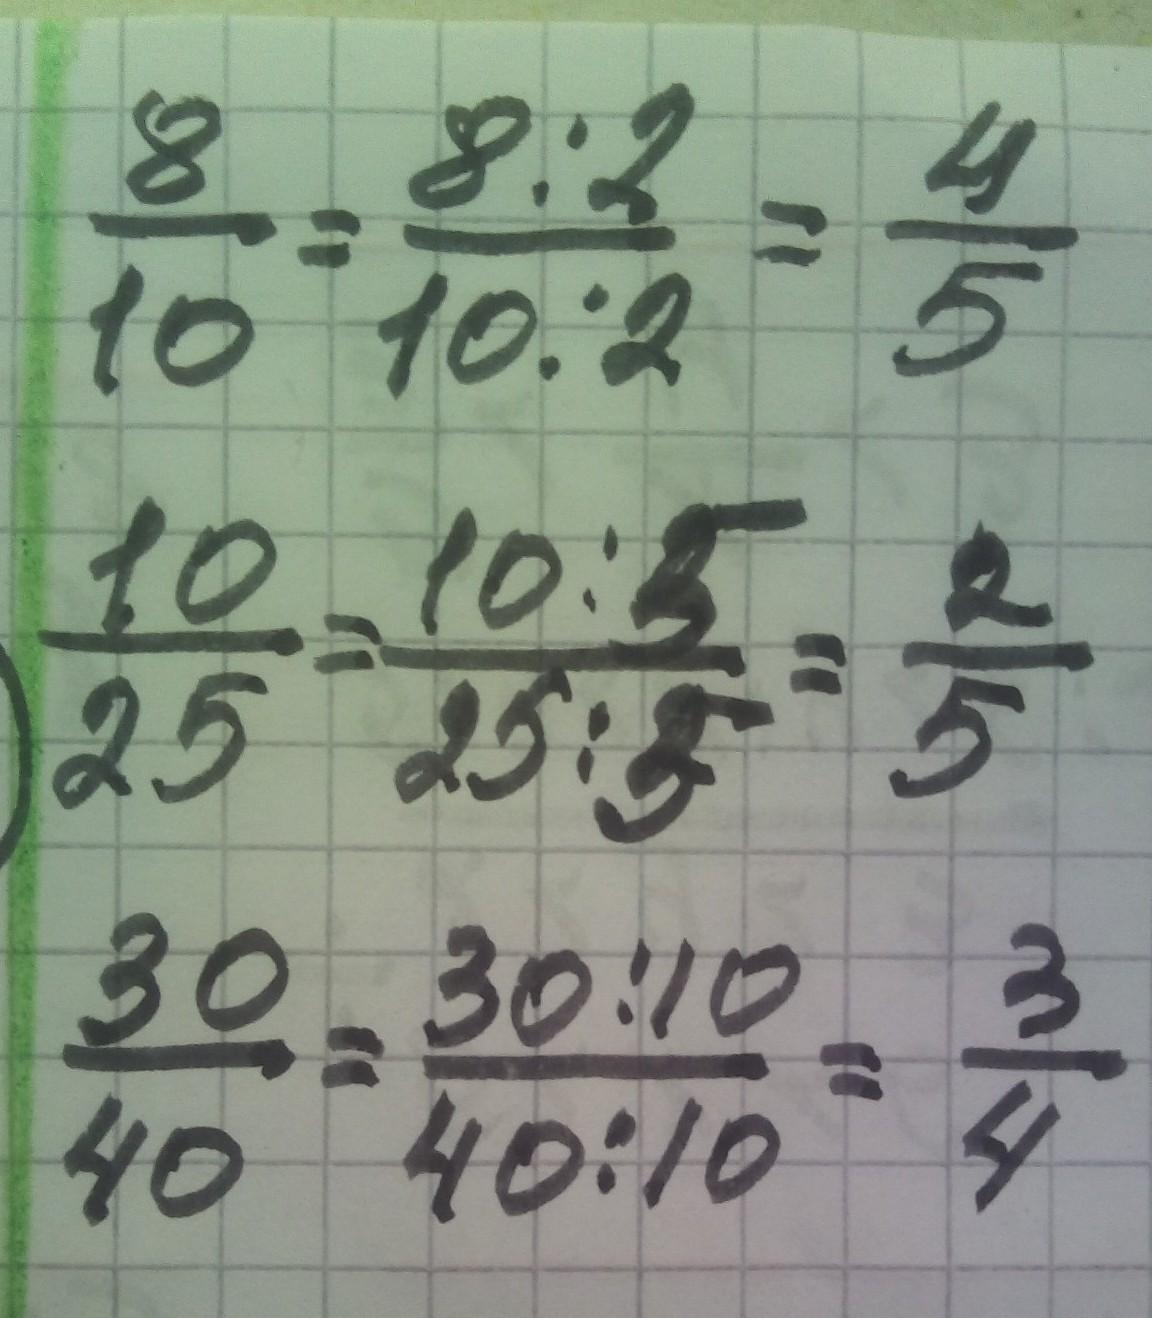 8/10 = 8:2/10:2 = 4/5
10/25 = 10:5/25:5 = 2/5
30/40 = 30:10/40:10 = 3/4